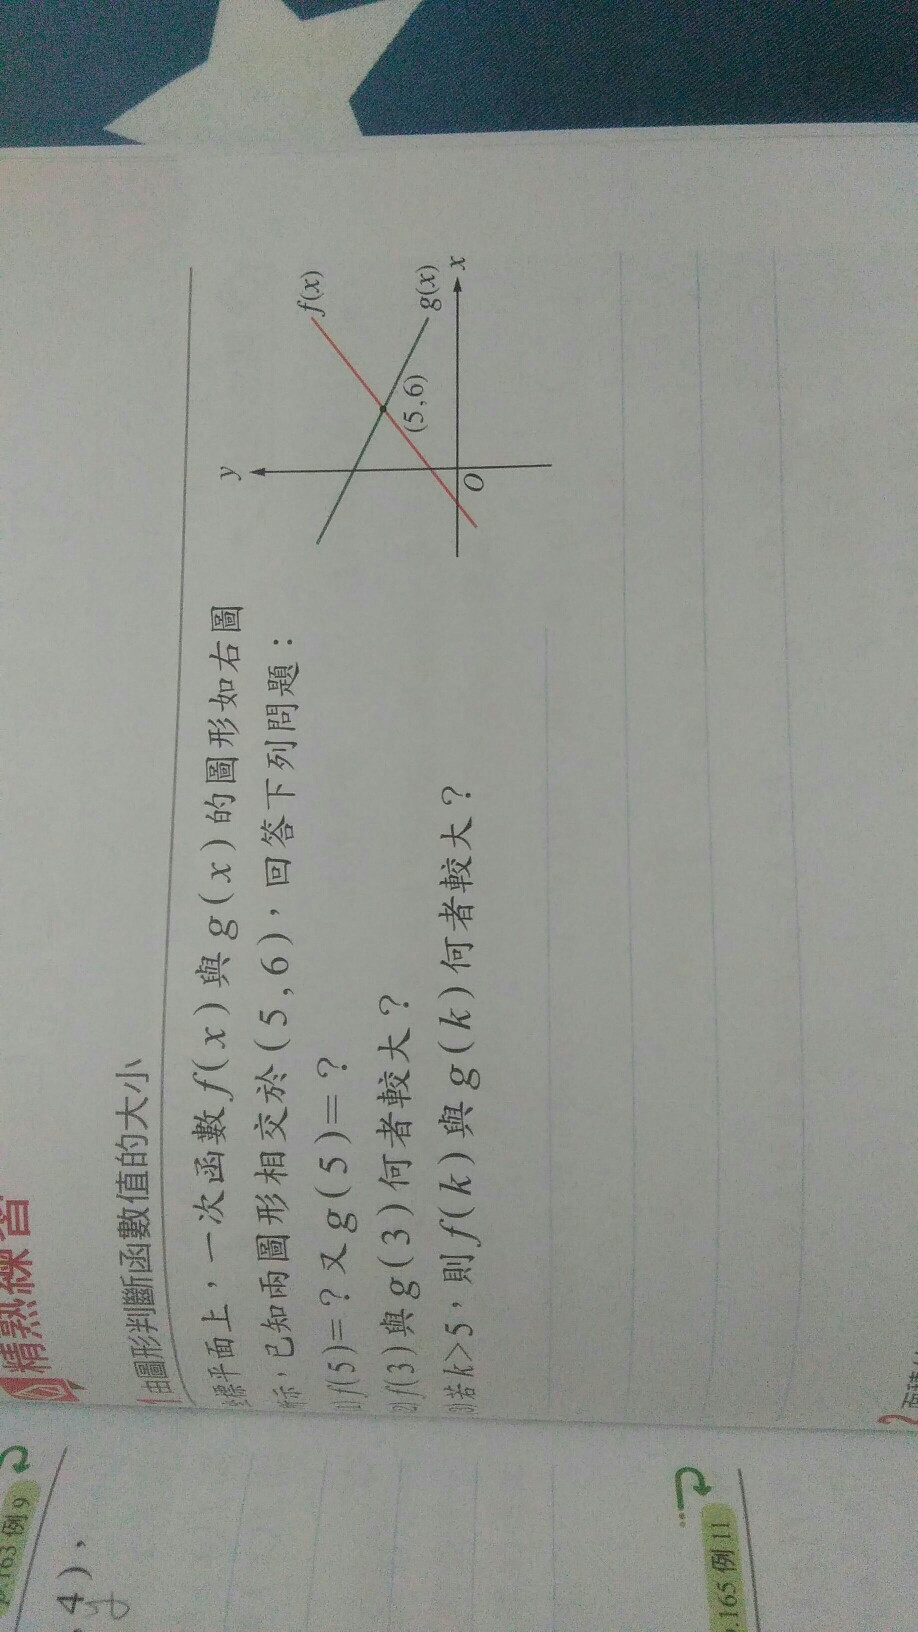 精熟練習
1 由圖形判斷函數值的大小
坐標平面上，一次函數f(x)與g(x)的圖形如右圖
所示，已知兩圖形相交於(5,6)，回答下列問題：
(1) f(5)=？又g(5)=？
(2) f(3)與g(3)何者較大？
(3) 若k>5，則f(k)與g(k)何者較大？
y
f(x)
(5,6)
g(x)
O
x
2
p.163 例 9
4)，
p.165 例 11